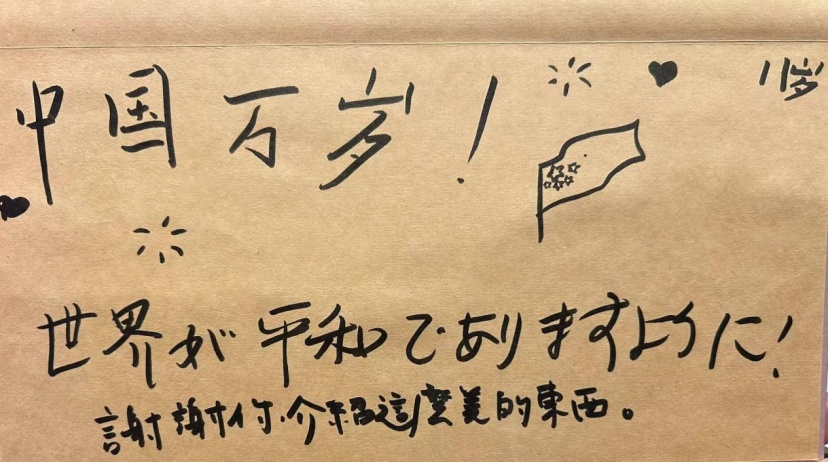 中国万岁！
11岁
世界が平和でありますように！
謝謝你介紹這麼美的東西。